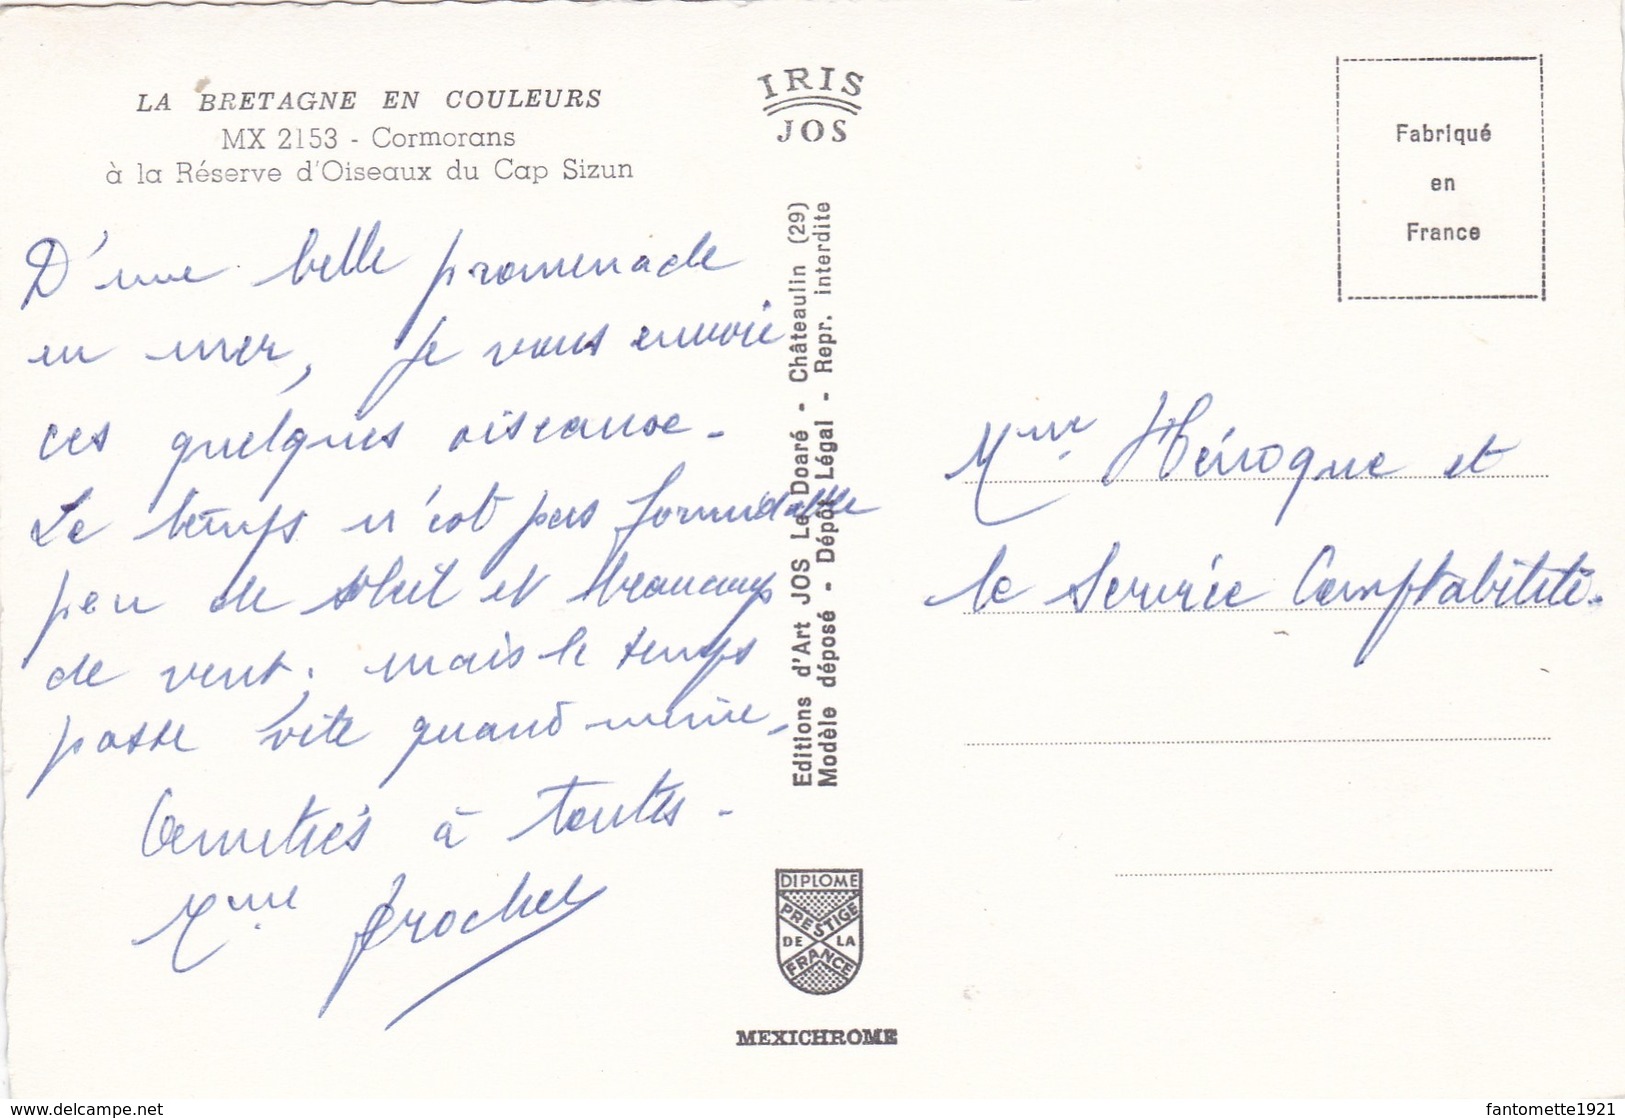 LA BRETAGNE EN COULEURS
MX 2153 - Cormorans
à la Réserve d'Oiseaux du Cap Sizun
D'une belle promenade
en mer, je vous envoie
ces quelques oiseaux.
Le temps n'est pas formidable
peu de soleil et beaucoup
de vent, mais le temps
passe vite quand même.
Amitiés à toutes.
Mme
IRIS
JOS
Editions d'Art JOS Le Doaré - Châteaulin (29)
Modèle déposé - Dépôt Légal - Repr. interdite
DIPLOME
PRESTIGE
DE LA
FRANCE
MEXICHROME
Fabriqué
en
France
Mme Hénoque et
le Service Comptabilité.
www.delcampe.net
fantomette1921